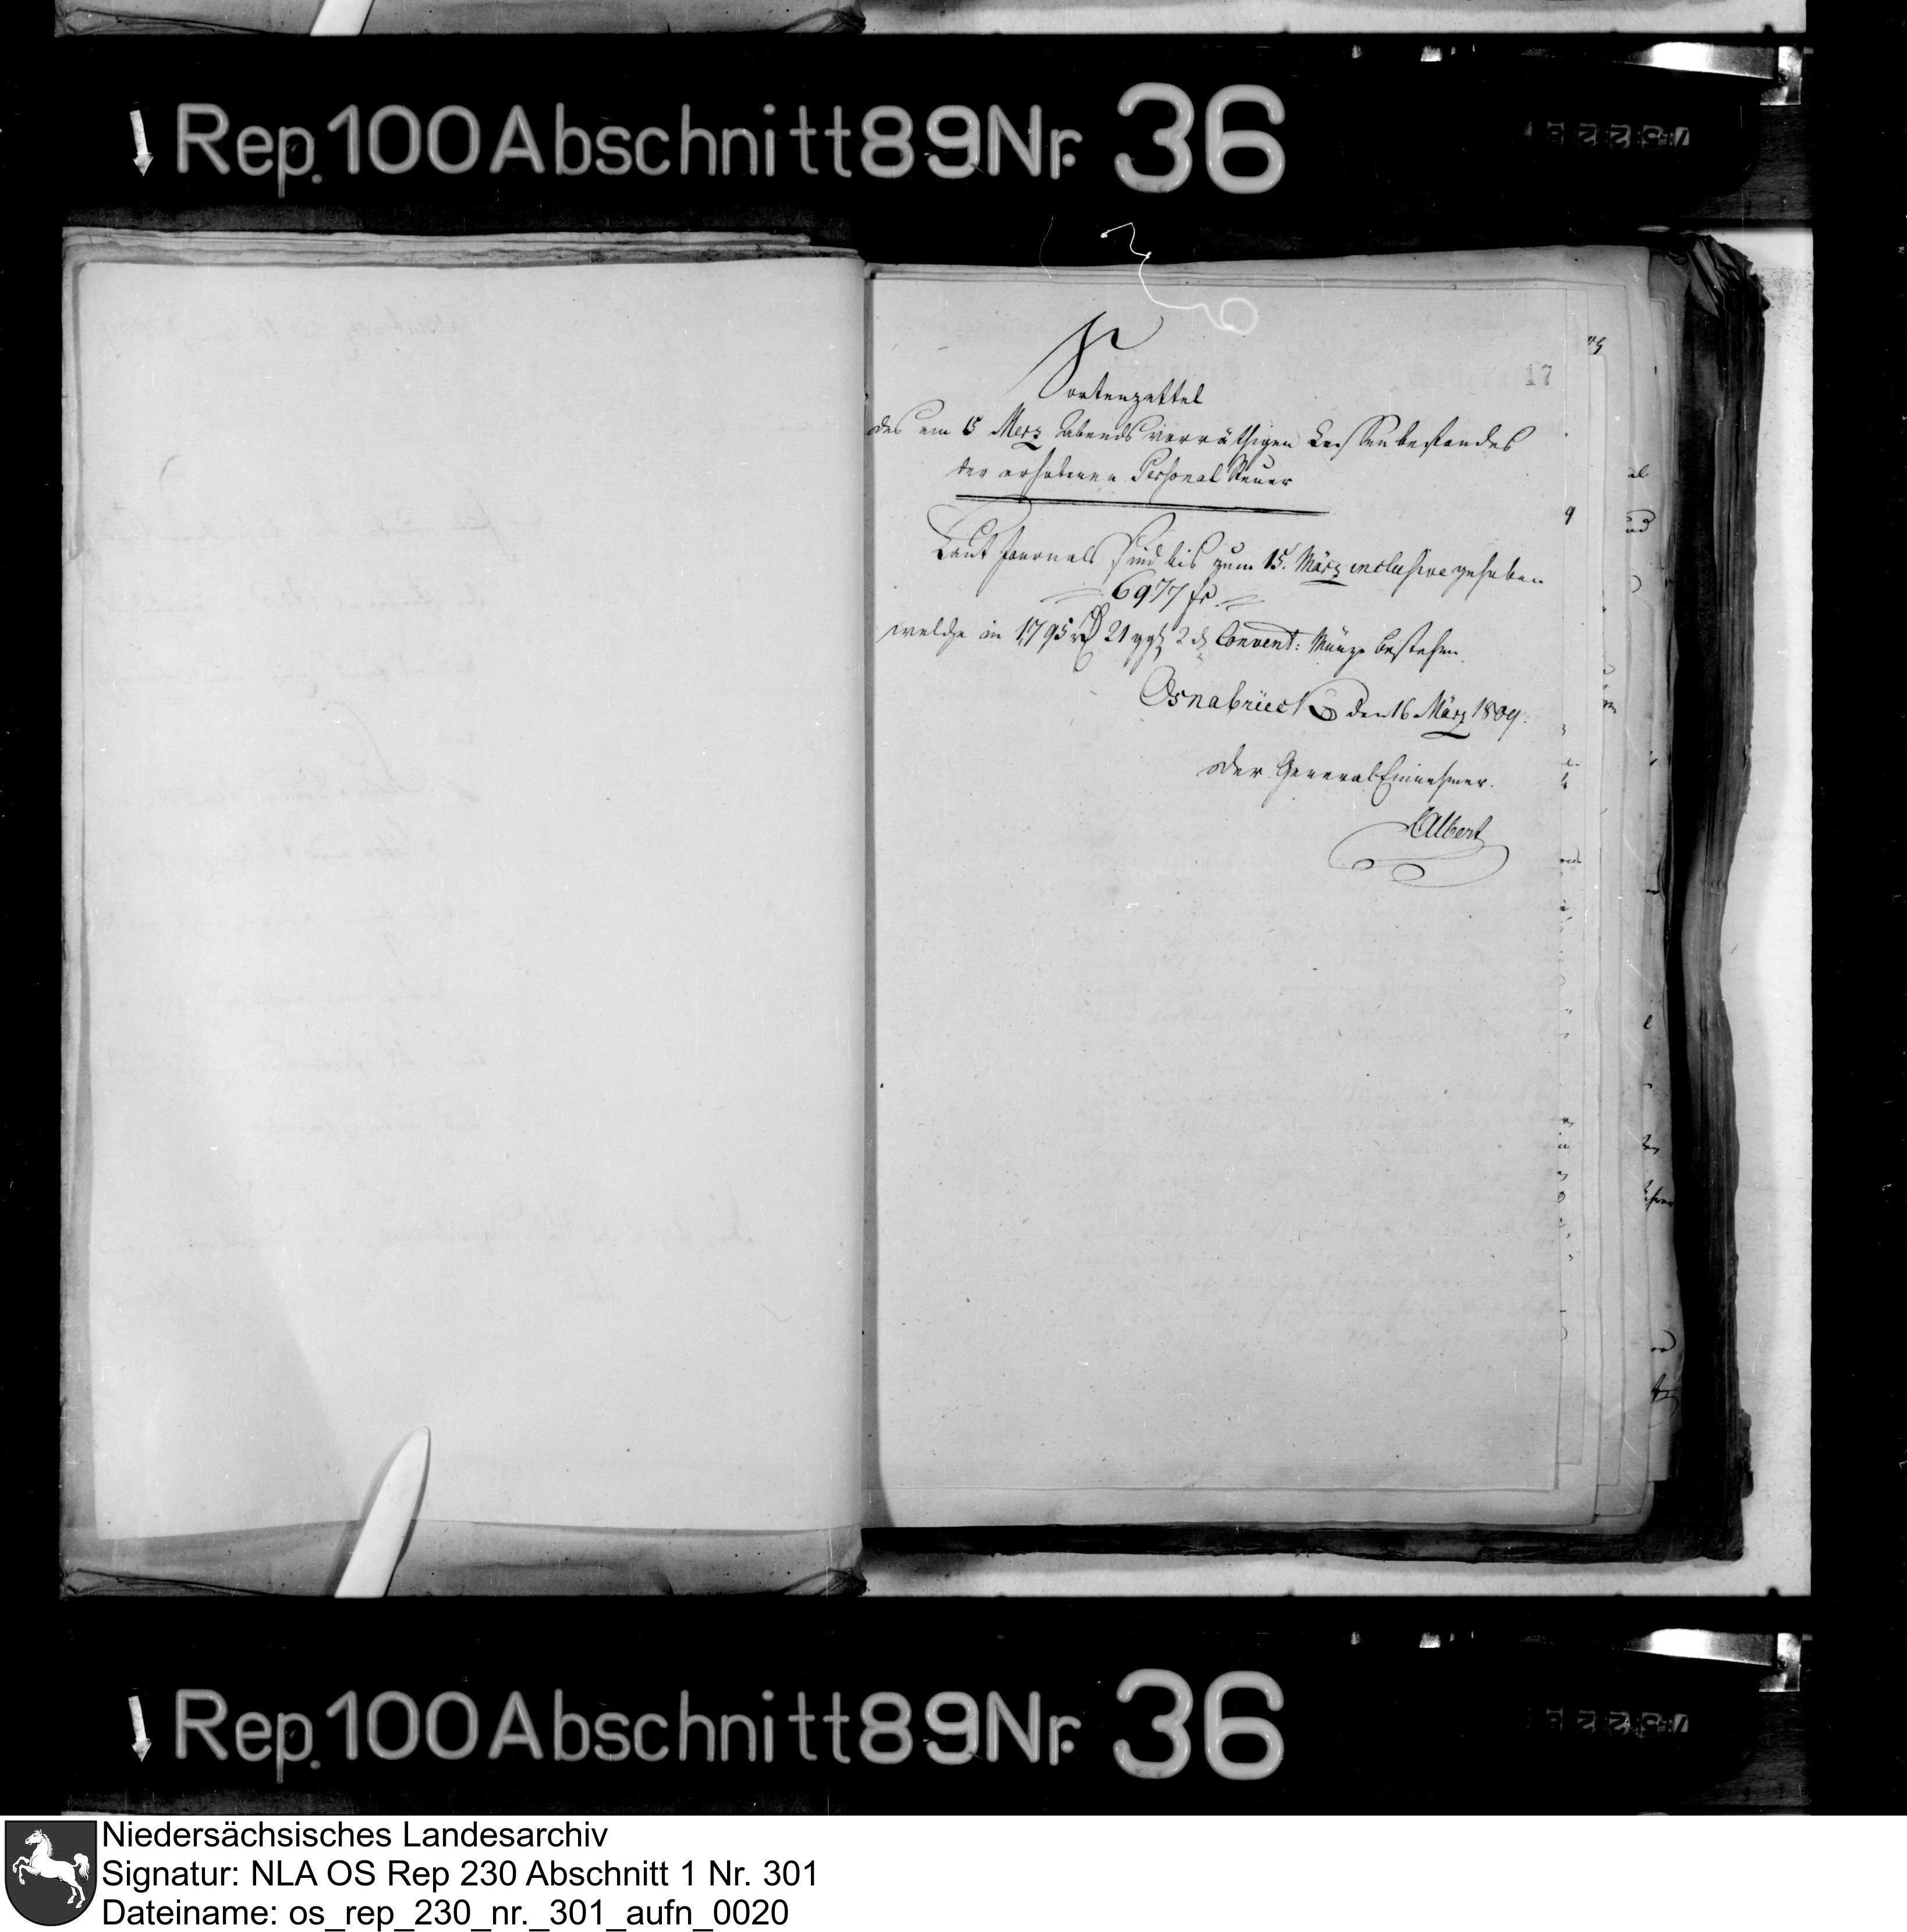 Rep. 100 Abschnitt 89 Nr. 36
17
Sortenzettel
des am 15 Merz Abends vorräthigen Cassenbestandes
der erhobenen Personal Steuer
Laut Journals sind bis zum 15. März inclusive gehoben
6977 fr.
welche in 1795 rt 21 ggl 2 d Convent: Münze bestehen.
Osnabrück den 16 März 1809.
Der General Einnehmer.
Albert
Rep. 100 Abschnitt 89 Nr. 36
Niedersächsisches Landesarchiv
Signatur: NLA OS Rep 230 Abschnitt 1 Nr. 301
Dateiname: os_rep_230_nr._301_aufn_0020